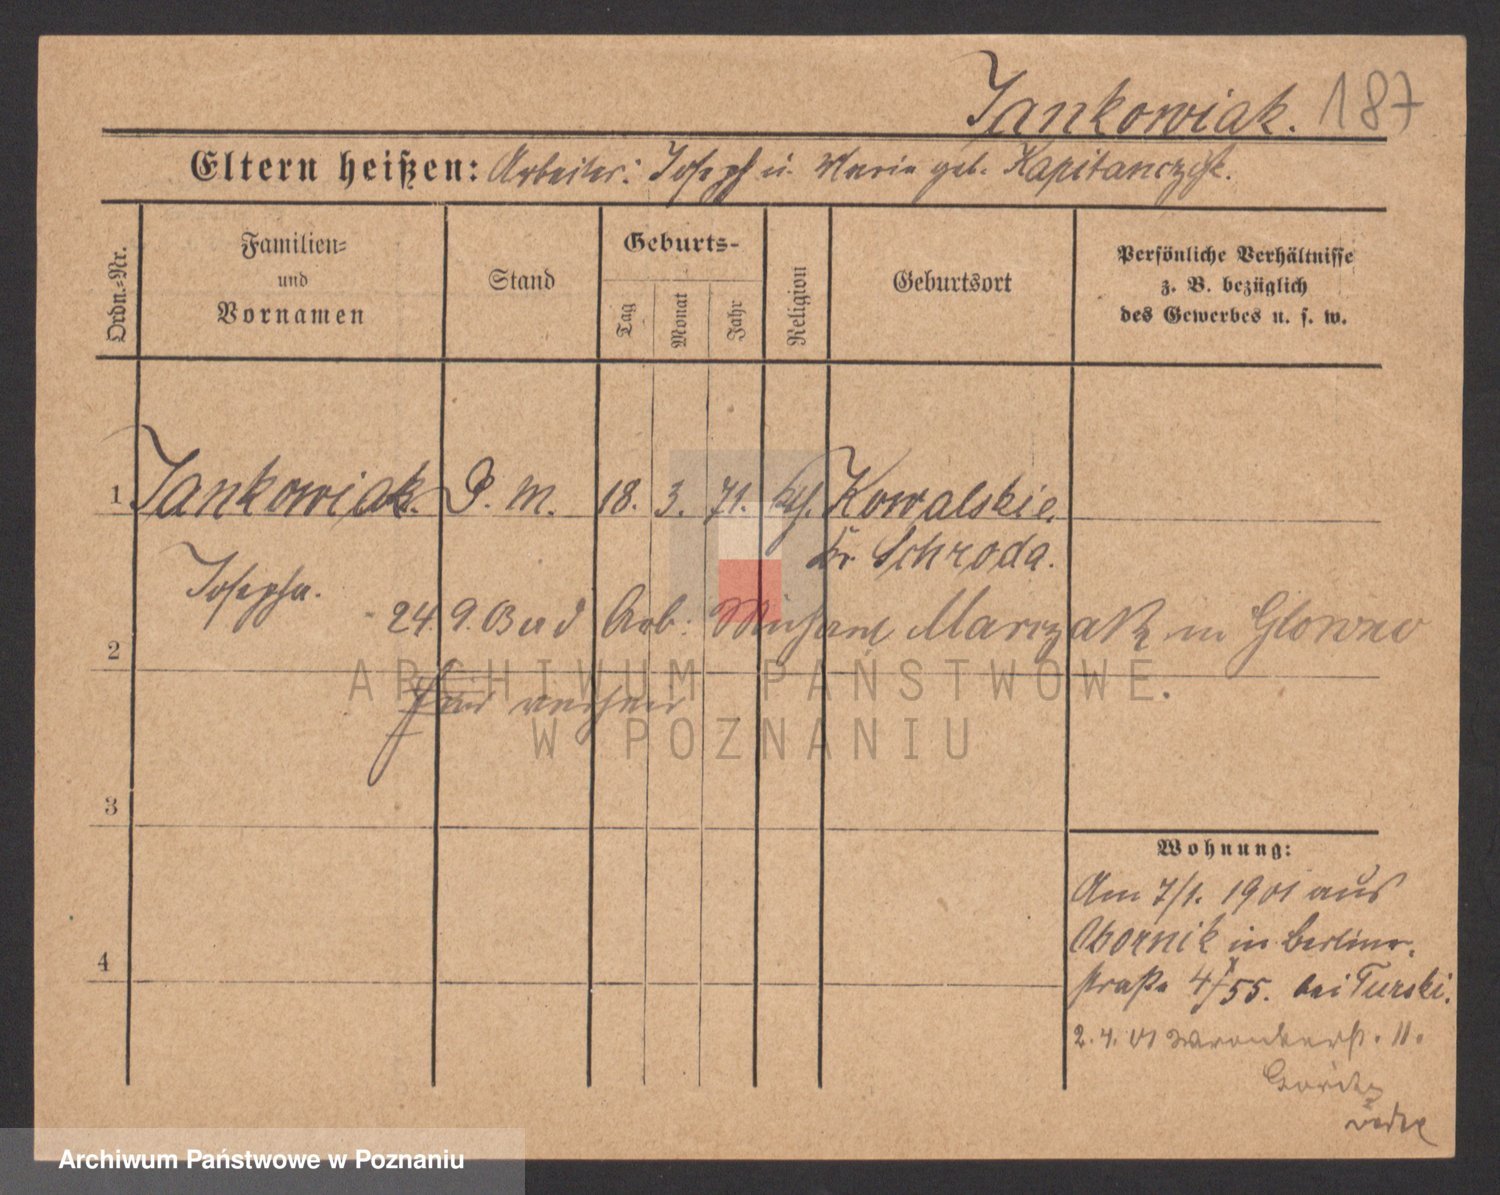 Jankowiak. 187
Eltern heißen: Arbeiter: Joseph u. Marie geb. Kapitanczyk.
Ordn.=Nr.
Familien=
und
Vornamen
Stand
Geburts-
Tag
Monat
Jahr
Religion
Geburtsort
Persönliche Verhältnisse
z. B. bezüglich
des Gewerbes u. s. w.
1 Jankowiak. D. M. 18. 3. 71. kth. Kowalskie.
Kr. Schroda.
Josepha.
24. 9. 03 Arb. Michael Marczak in Glowno
2
hier
3
Wohnung:
Am 7/1. 1901 aus
Obornik in Berliner-
straße 4/55. bei Turski.
4
2. 4. 01 Wronkerst. 11.
ARCHIWUM PAŃSTWOWE
W POZNANIU
Archiwum Państwowe w Poznaniu